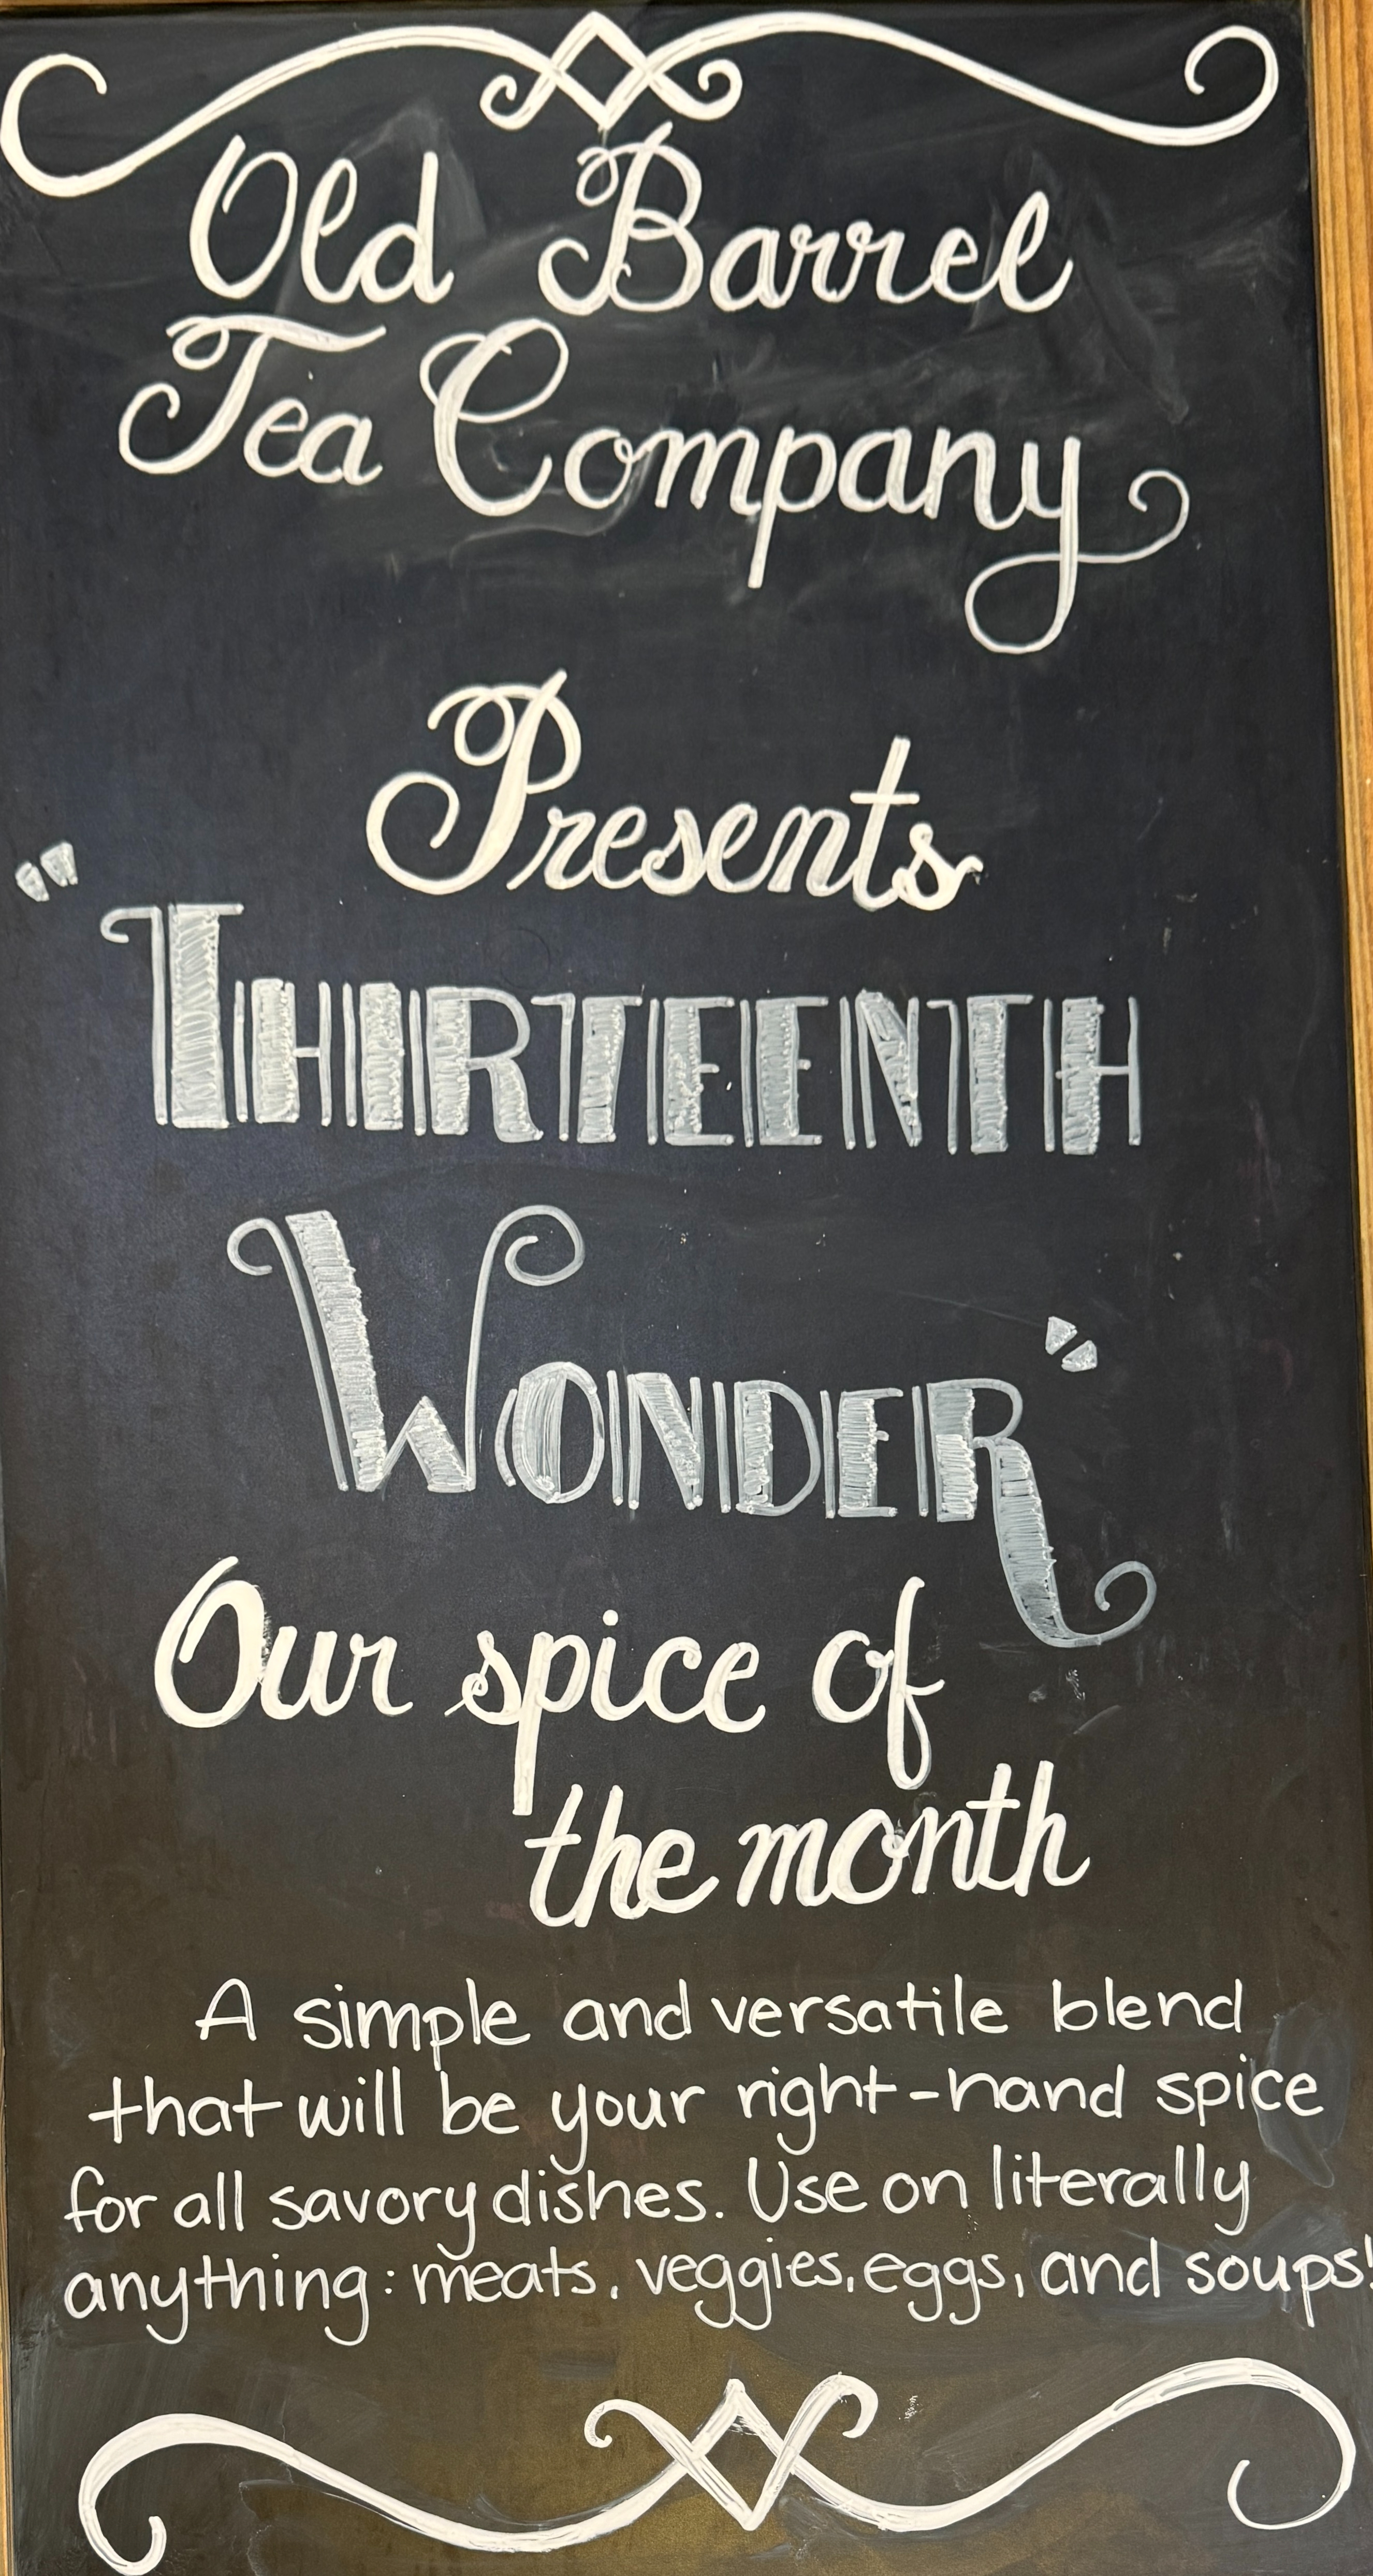 Old Barrel
Tea Company
Presents
"THIRTEENTH
WONDER"
Our spice of
the month
A simple and versatile blend
that will be your right-hand spice
for all savory dishes. Use on literally
anything: meats, veggies, eggs, and soups!